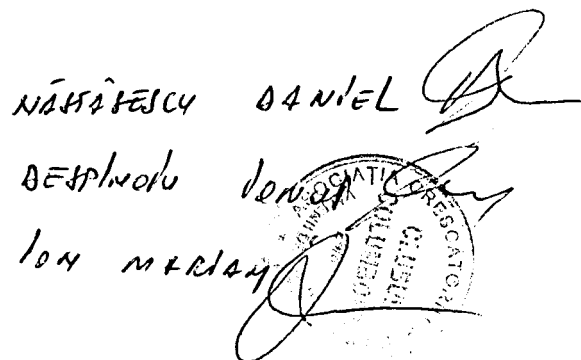 NĂSTĂSESCU DANIEL
DESPINOIU IONUȚ
ION MARIAN
ASOCIAȚIA CRESCATORI
CLUBUL